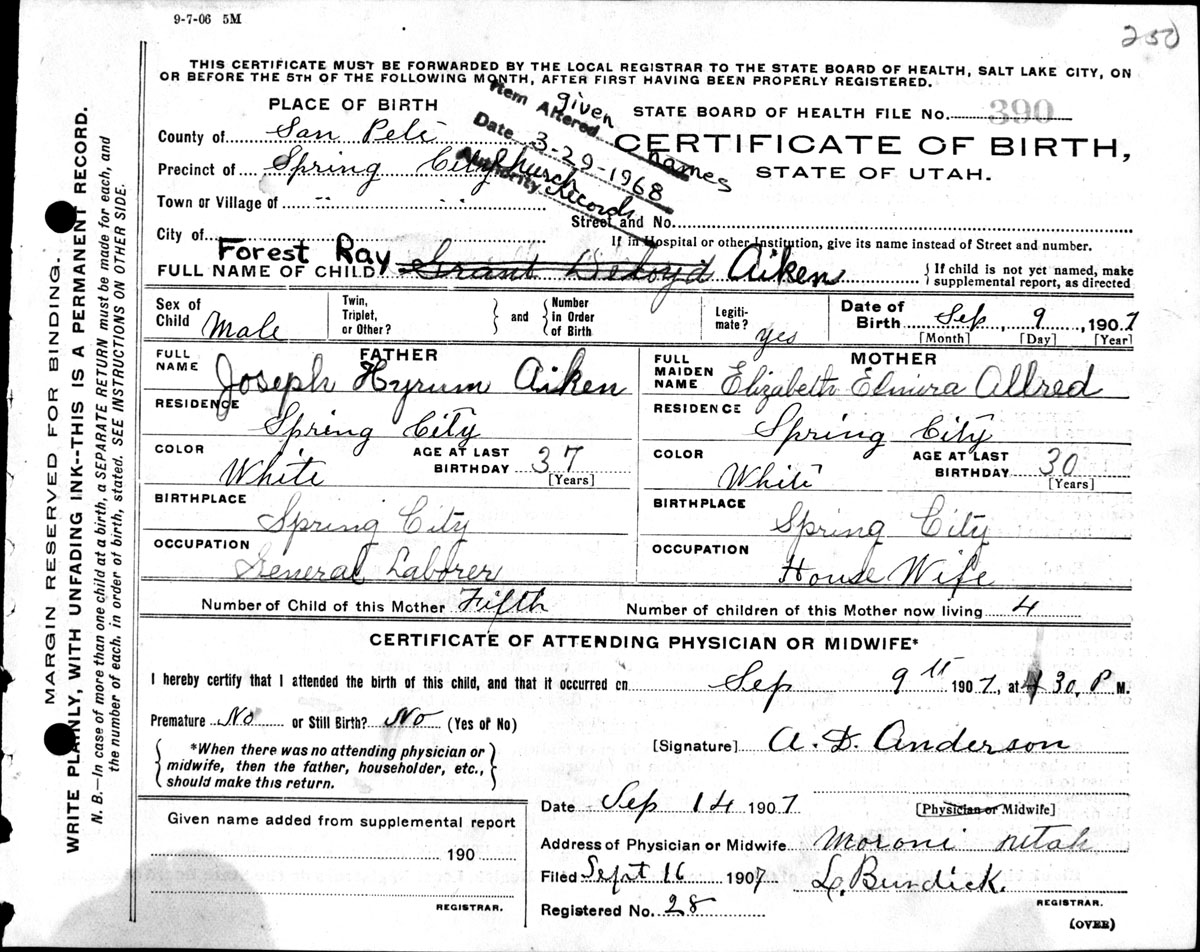 9-7-06 5M
250
THIS CERTIFICATE MUST BE FORWARDED BY THE LOCAL REGISTRAR TO THE STATE BOARD OF HEALTH, SALT LAKE CITY, ON
OR BEFORE THE 5TH OF THE FOLLOWING MONTH, AFTER FIRST HAVING BEEN PROPERLY REGISTERED.
PLACE OF BIRTH
STATE BOARD OF HEALTH FILE No. 390
CERTIFICATE OF BIRTH,
STATE OF UTAH.
Item Altered given names
Date 3-29-1968
Authority Church Records
County of San Pete
Precinct of Spring City
Town or Village of
Street and No.
City of
If in Hospital or other Institution, give its name instead of Street and number.
Forest Ray
FULL NAME OF CHILD Grant Deloyd Aiken
If child is not yet named, make
supplemental report, as directed
Sex of Child Male
Twin, Triplet, or Other?
and
Number in Order of Birth
Legiti-mate? yes
Date of Birth Sep, 9, 1907
[Month] [Day] [Year]
FATHER
FULL NAME Joseph Hyrum Aiken
RESIDENCE Spring City
COLOR White
AGE AT LAST BIRTHDAY 37
[Years]
BIRTHPLACE Spring City
OCCUPATION General Laborer
MOTHER
FULL MAIDEN NAME Elizabeth Elmira Allred
RESIDENCE Spring City
COLOR White
AGE AT LAST BIRTHDAY 30
[Years]
BIRTHPLACE Spring City
OCCUPATION House Wife
Number of Child of this Mother Fifth Number of children of this Mother now living 4
CERTIFICATE OF ATTENDING PHYSICIAN OR MIDWIFE*
I hereby certify that I attended the birth of this child, and that it occurred on Sep 9th 1907, at 4 30 P M.
Premature No or Still Birth? No (Yes or No)
*When there was no attending physician or
midwife, then the father, householder, etc.,
should make this return.
[Signature] A. D. Anderson
Date Sep 14 1907
[Physician or Midwife]
Given name added from supplemental report
190
REGISTRAR.
Address of Physician or Midwife Moroni Utah
Filed Sept 16 1907 L. Burdick.
REGISTRAR.
Registered No. 28
(OVER)
MARGIN RESERVED FOR BINDING.
WRITE PLAINLY, WITH UNFADING INK--THIS IS A PERMANENT RECORD.
N. B.—In case of more than one child at a birth, a SEPARATE RETURN must be made for each, and
the number of each, in order of birth, stated. SEE INSTRUCTIONS ON OTHER SIDE.